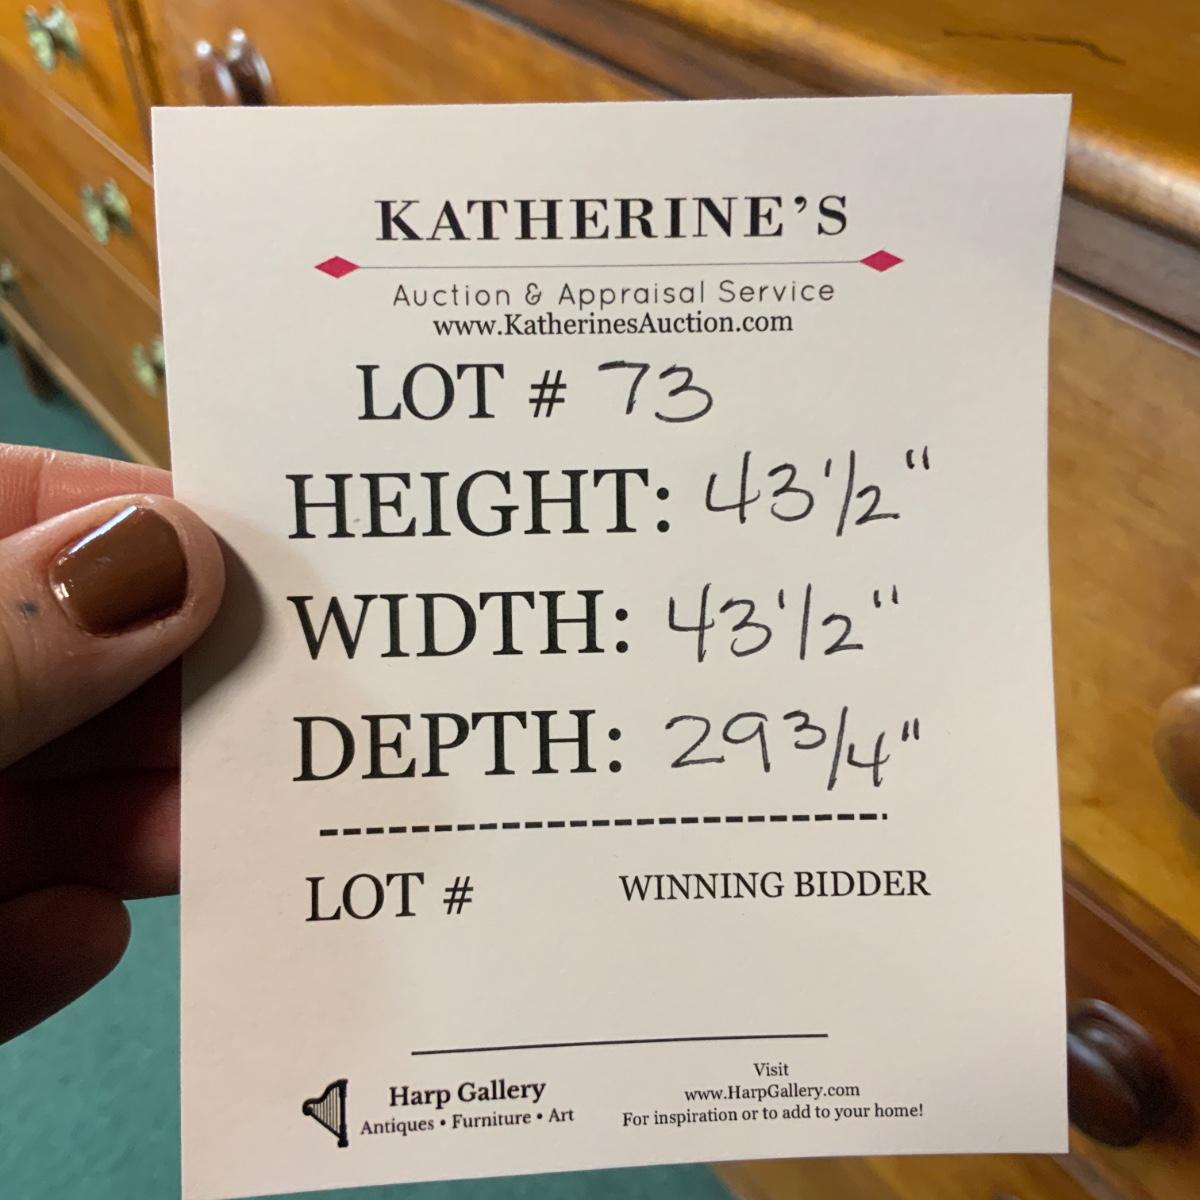 KATHERINE'S
Auction & Appraisal Service
www.KatherinesAuction.com
LOT # 73
HEIGHT: 43 1/2"
WIDTH: 43 1/2"
DEPTH: 29 3/4"
LOT # WINNING BIDDER
Harp Gallery
Antiques • Furniture • Art
Visit
www.HarpGallery.com
For inspiration or to add to your home!